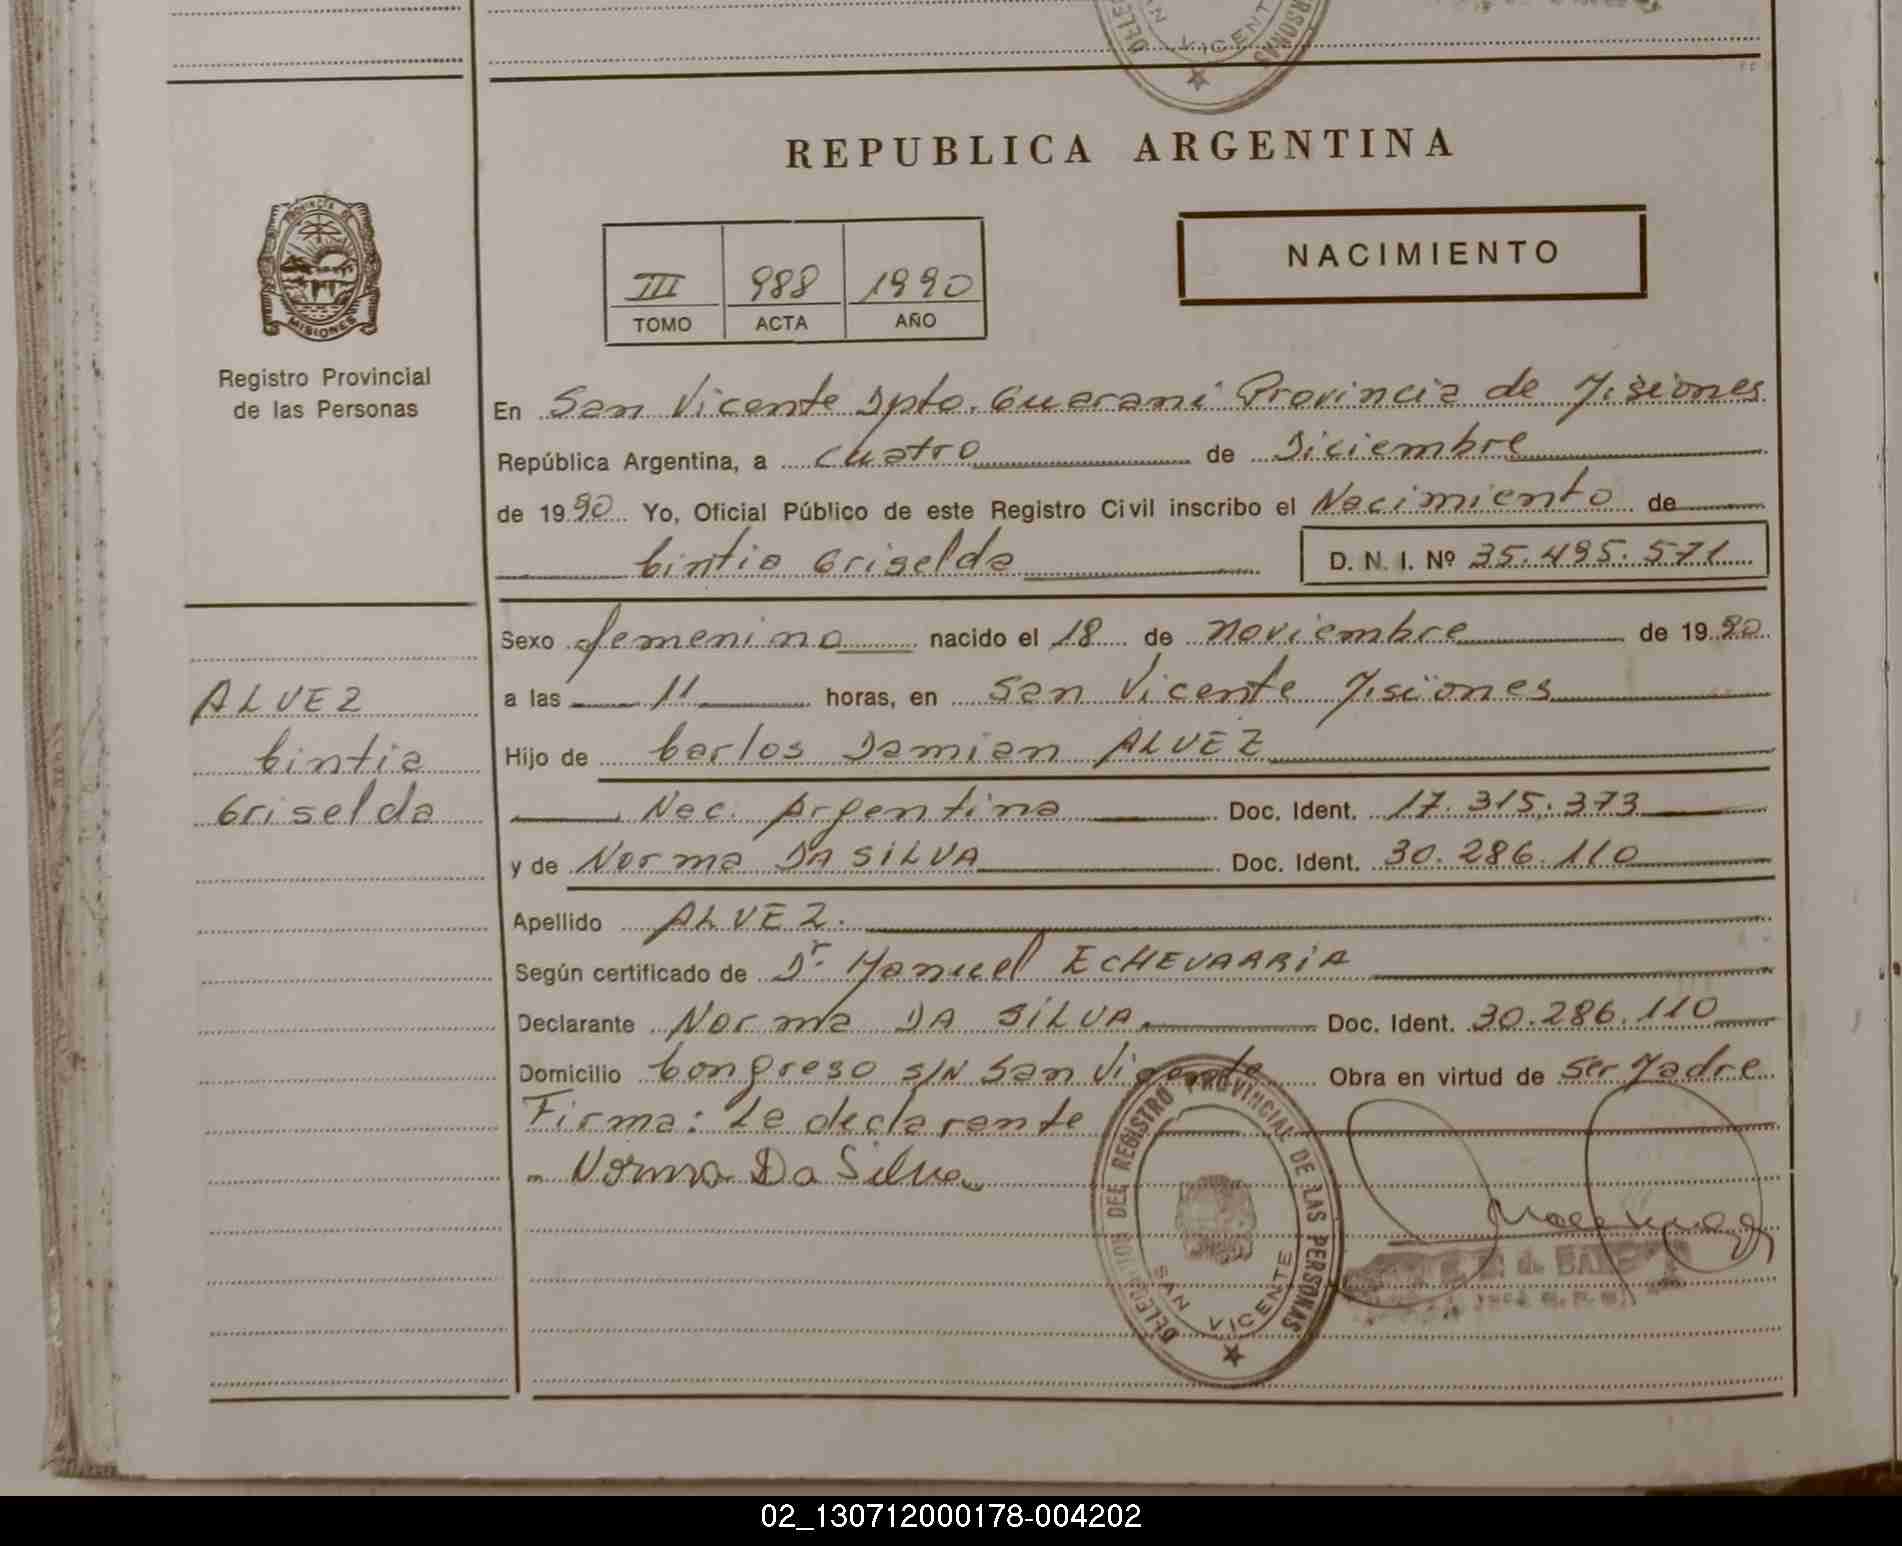 DELE SAN VICENTE PERSONAS
REPUBLICA ARGENTINA
PROVINCIA DE
MISIONES
Registro Provincial
de las Personas
III 988 1990
TOMO ACTA AÑO
NACIMIENTO
En San Vicente Dpto. Guarani Provincia de Misiones
República Argentina, a cuatro de Diciembre
de 1990 Yo, Oficial Público de este Registro Civil inscribo el Nacimiento de
Cintia Griselda D. N. I. Nº 35.495.571
Sexo femenino nacido el 18 de noviembre de 1990
a las 11 horas, en San Vicente Misiones
Hijo de Carlos Damian ALVEZ
Nac. Argentina Doc. Ident. 17.315.373
y de Norma DA SILVA Doc. Ident. 30.286.110
Apellido ALVEZ.
Según certificado de Dr. Manuel ECHEVARRIA
Declarante Norma DA SILVA Doc. Ident. 30.286.110
Domicilio Congreso S/N San Vicente Obra en virtud de ser Madre
Firma: La declarante
Norma Da Silva
ALVEZ
Cintia
Griselda
DELEGACION DEL REGISTRO PROVINCIAL DE LAS PERSONAS
SAN VICENTE
02_130712000178-004202